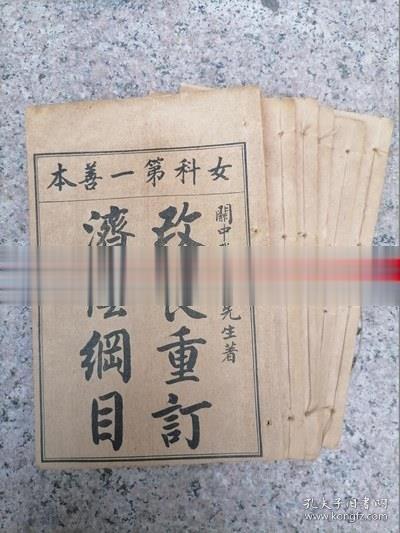 女科第一善本
關中
先生著
改良重訂
濟陰綱目
孔夫子旧书网
www.kongfz.com